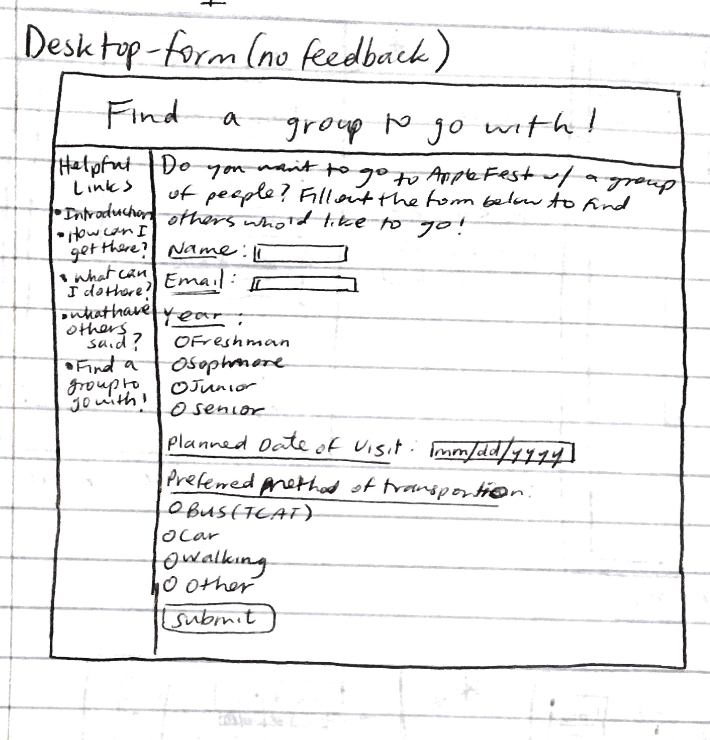 Desktop-form (no feedback)
Find a group to go with!
Helpful
Links
• Introduction
• How can I
get there?
• What can
I do there?
• what have
others
said?
• Find a
group to
go with!
Do you want to go to AppleFest w/ a group
of people? Fill out the form below to find
others who'd like to go!
Name:
Email:
Year:
Freshman
Sophmore
Junior
Senior
Planned Date of Visit: mm/dd/yyyy
Preferred method of transportion:
BUS (TCAT)
Car
Walking
Other
submit